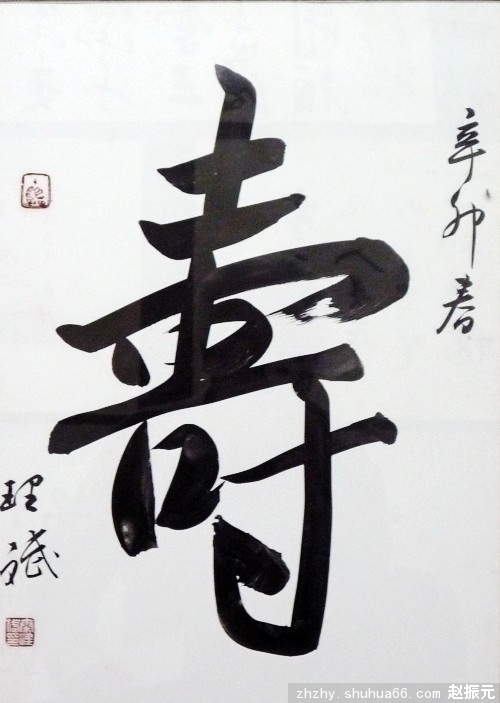 辛卯春
壽
理斌
zhzhy.shuhua66.com 赵振元